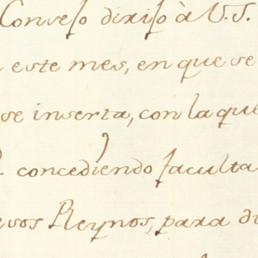 Consejo dirijo à V.S.
este mes, en que se
se inserta, con la que
concediendo faculta
Reynos, para di